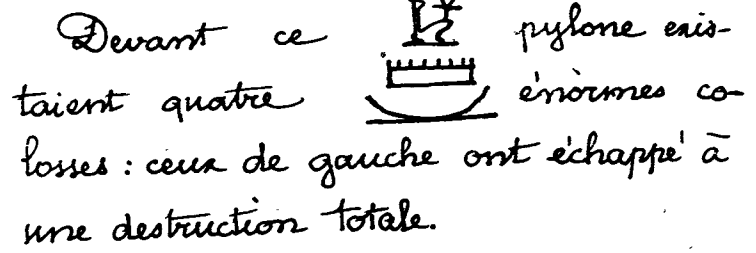 Devant ce pylone exis-
taient quatre énormes co-
losses : ceux de gauche ont échappé à
une destruction totale.